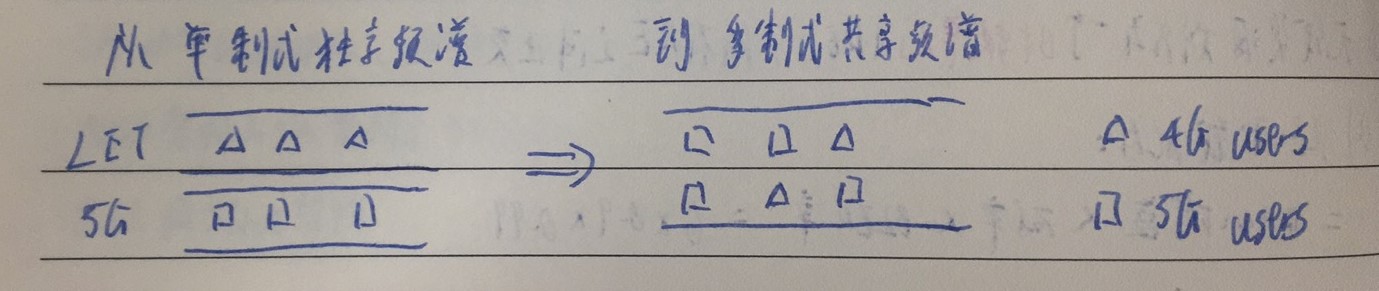 从单制式独享频谱 到多制式共享频谱
LET △ △ △ ⇒ □ □ △ △ 4G users
5G □ □ □ □ △ □ □ 5G users